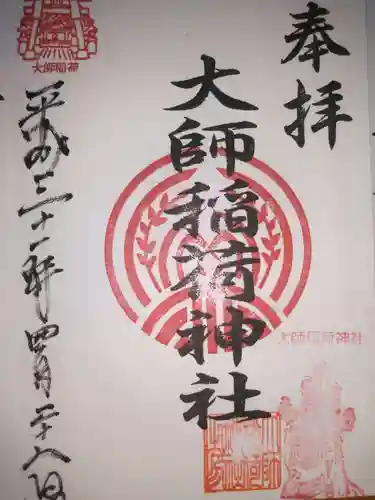 奉拝
大師稲荷神社
平成三十一年四月二十八日
大師稲荷神社
大師稲荷